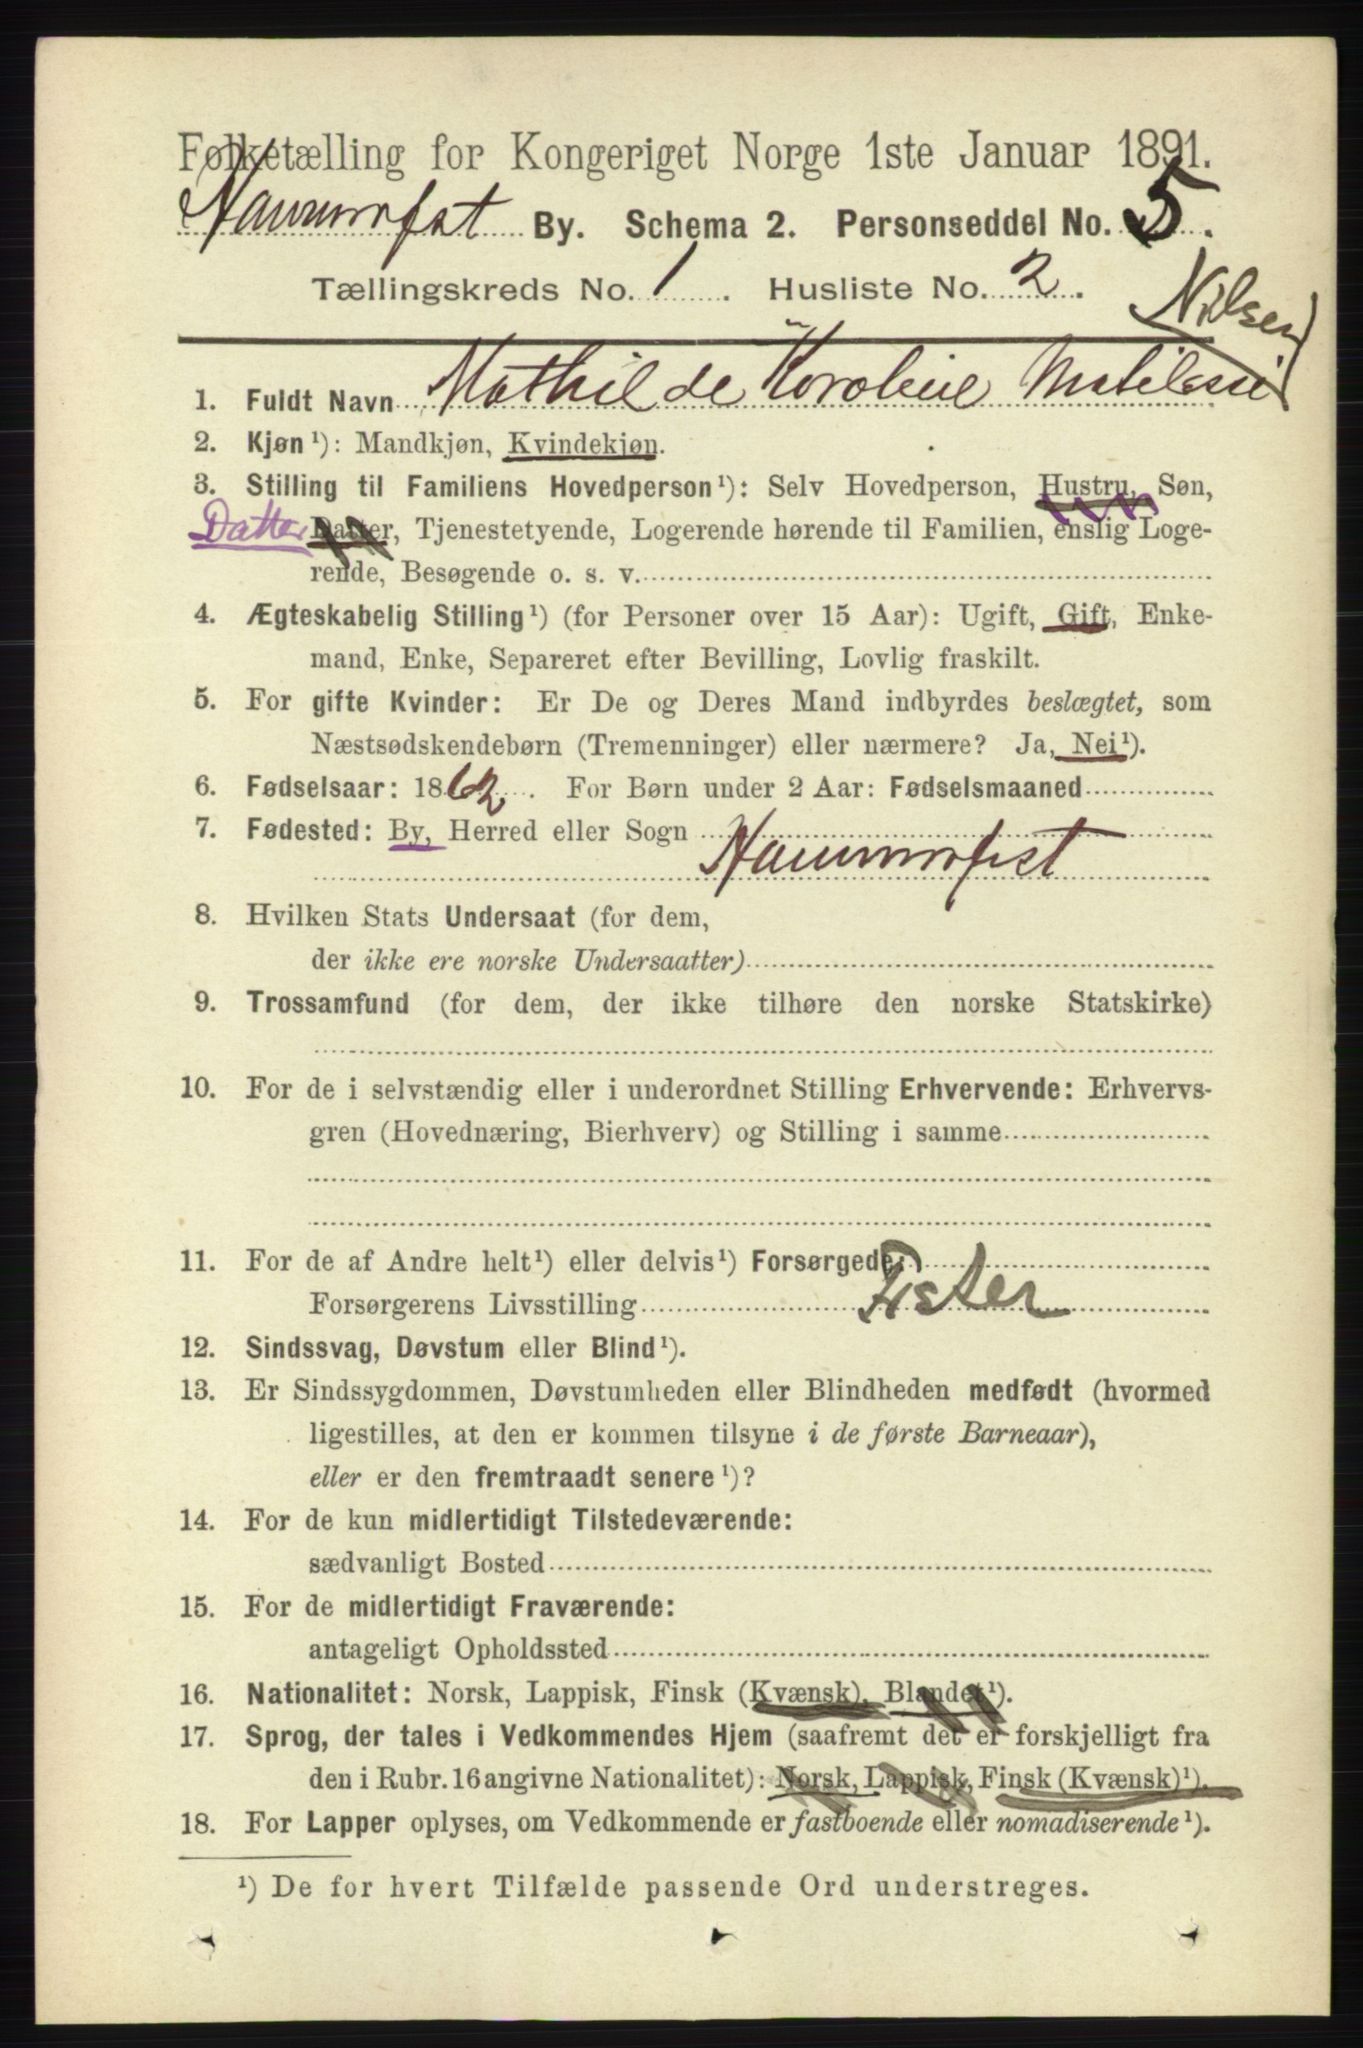 Folketælling for Kongeriget Norge 1ste Januar 1891.
Hammerfest By. Schema 2. Personseddel No. 5.
Tællingskreds No. 1. Husliste No. 2.
Nilsen
1. Fuldt Navn Mathilde Karoline
2. Kjøn ¹): Mandkjøn, Kvindekjøn.
3. Stilling til Familiens Hovedperson ¹): Selv Hovedperson, Hustru, Søn,
Datter Datter, Tjenestetyende, Logerende hørende til Familien, enslig Loge-
rende, Besøgende o. s. v.
4. Ægteskabelig Stilling ¹) (for Personer over 15 Aar): Ugift, Gift, Enke-
mand, Enke, Separeret efter Bevilling, Lovlig fraskilt.
5. For gifte Kvinder: Er De og Deres Mand indbyrdes beslægtet, som
Næstsødskendebørn (Tremenninger) eller nærmere? Ja, Nei ¹).
6. Fødselsaar: 1862. For Børn under 2 Aar: Fødselsmaaned
7. Fødested: By, Herred eller Sogn
Hammerfest
8. Hvilken Stats Undersaat (for dem,
der ikke ere norske Undersaatter)
9. Trossamfund (for dem, der ikke tilhøre den norske Statskirke)
10. For de i selvstændig eller i underordnet Stilling Erhvervende: Erhvervs-
gren (Hovednæring, Bierhverv) og Stilling i samme
11. For de af Andre helt ¹) eller delvis ¹) Forsørgede:
Forsørgerens Livsstilling Fisker
12. Sindssvag, Døvstum eller Blind ¹).
13. Er Sindssygdommen, Døvstumheden eller Blindheden medfødt (hvormed
ligestilles, at den er kommen tilsyne i de første Barneaar),
eller er den fremtraadt senere ¹)?
14. For de kun midlertidigt Tilstedeværende:
sædvanligt Bosted
15. For de midlertidigt Fraværende:
antageligt Opholdssted
16. Nationalitet: Norsk, Lappisk, Finsk (Kvænsk), Blandet ¹).
17. Sprog, der tales i Vedkommendes Hjem (saafremt det er forskjelligt fra
den i Rubr. 16 angivne Nationalitet): Norsk, Lappisk, Finsk (Kvænsk) ¹).
18. For Lapper oplyses, om Vedkommende er fastboende eller nomadiserende ¹).
¹) De for hvert Tilfælde passende Ord understreges.